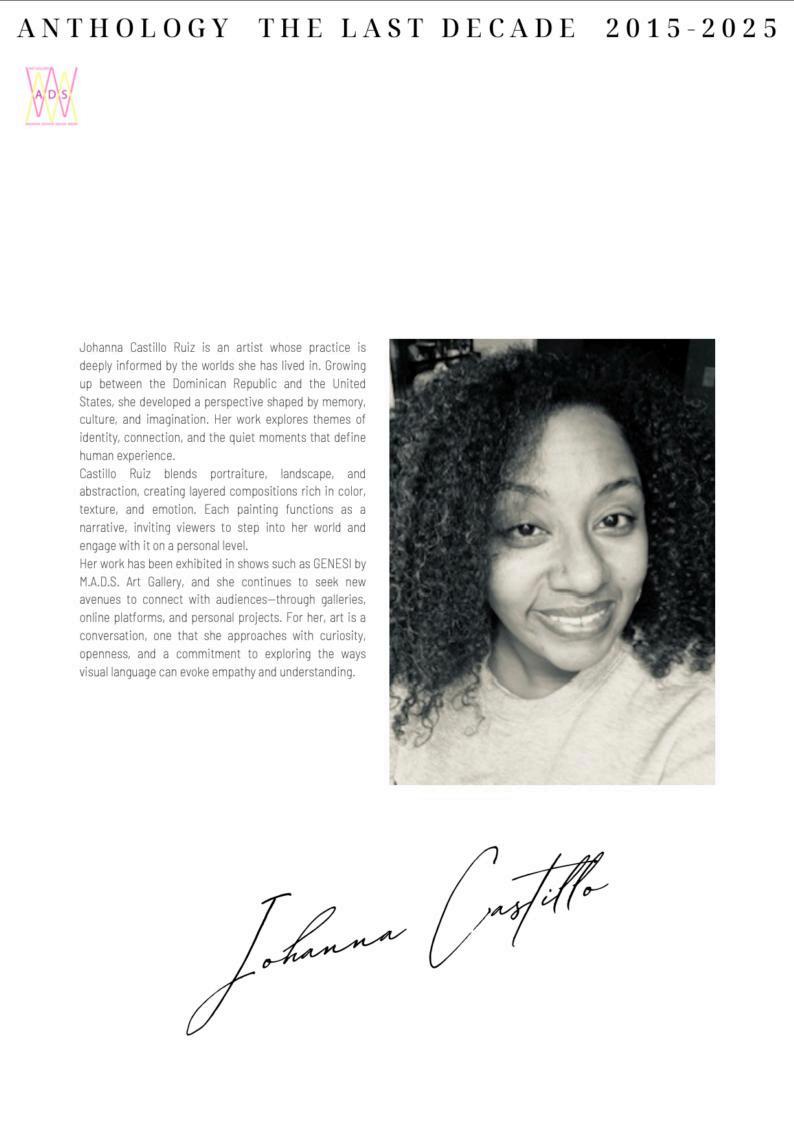 ANTHOLOGY THE LAST DECADE 2015-2025
ADS
Johanna Castillo Ruiz is an artist whose practice is
deeply informed by the worlds she has lived in. Growing
up between the Dominican Republic and the United
States, she developed a perspective shaped by memory,
culture, and imagination. Her work explores themes of
identity, connection, and the quiet moments that define
human experience.
Castillo Ruiz blends portraiture, landscape, and
abstraction, creating layered compositions rich in color,
texture, and emotion. Each painting functions as a
narrative, inviting viewers to step into her world and
engage with it on a personal level.
Her work has been exhibited in shows such as GENESI by
M.A.D.S. Art Gallery, and she continues to seek new
avenues to connect with audiences—through galleries,
online platforms, and personal projects. For her, art is a
conversation, one that she approaches with curiosity,
openness, and a commitment to exploring the ways
visual language can evoke empathy and understanding.
Johanna Castillo